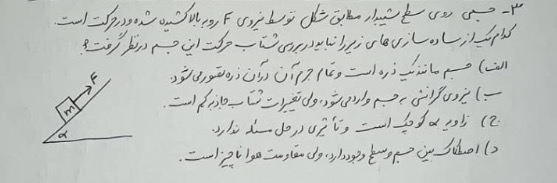 ۳- جسمی روی سطح شیبدار مطابق شکل توسط نیروی F رو به بالا کشیده شده و در حرکت است.
کدام یک از ساده سازی های زیر را نباید در بررسی شتاب حرکت این جسم در نظر گرفت؟
الف) جسم مانند یک ذره است و تمام جرم آن در آن ذره تصور می شود.
ب) نیروی گرانشی به جسم وارد می شود، ولی تغییرات شتاب جاذبه کم است.
ج) زاویه α کوچک است و تأثیری در حل مسئله ندارد.
د) اصطکاک بین جسم و سطح وجود دارد، ولی مقاومت هوا ناچیز است.
F
m
α